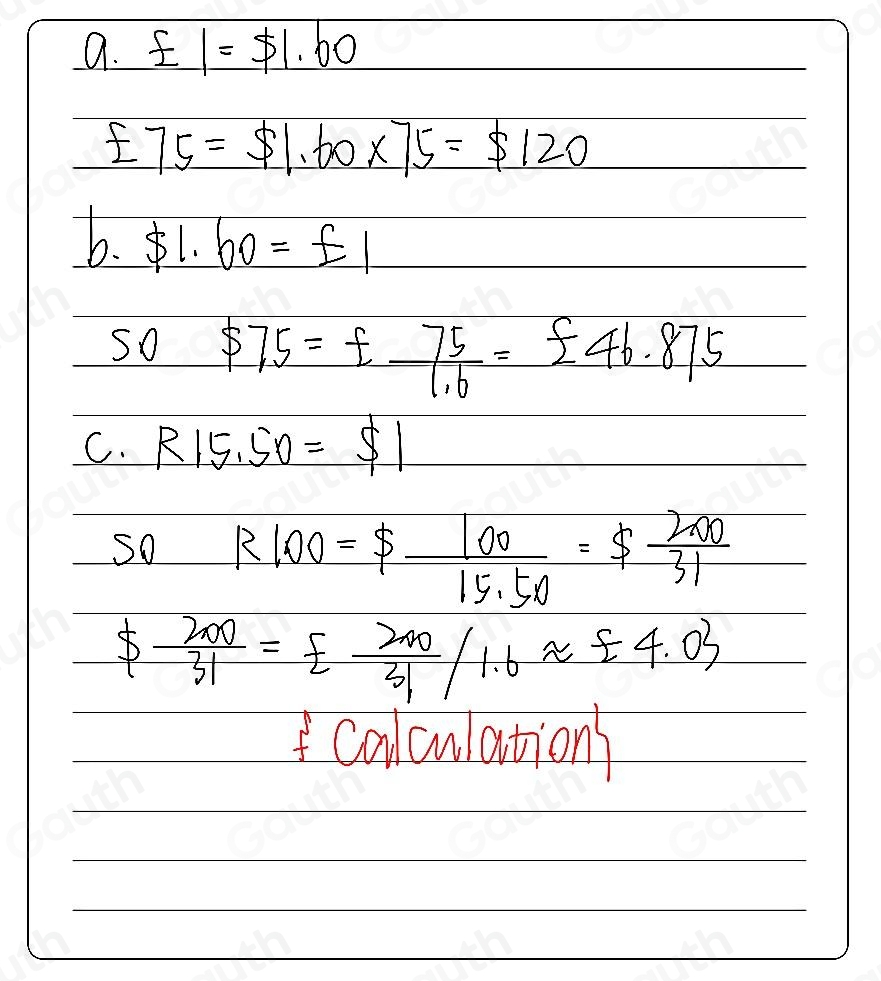 a. £1 = $1.60
£75 = $1.60 × 75 = $120
b. $1.60 = £1
so $75 = £ 75/1.6 = £46.875
c. R15.50 = $1
so R100 = $ 100/15.50 = $ 200/31
$ 200/31 = £ 200/31 / 1.6 ≈ £4.03
{calculation}